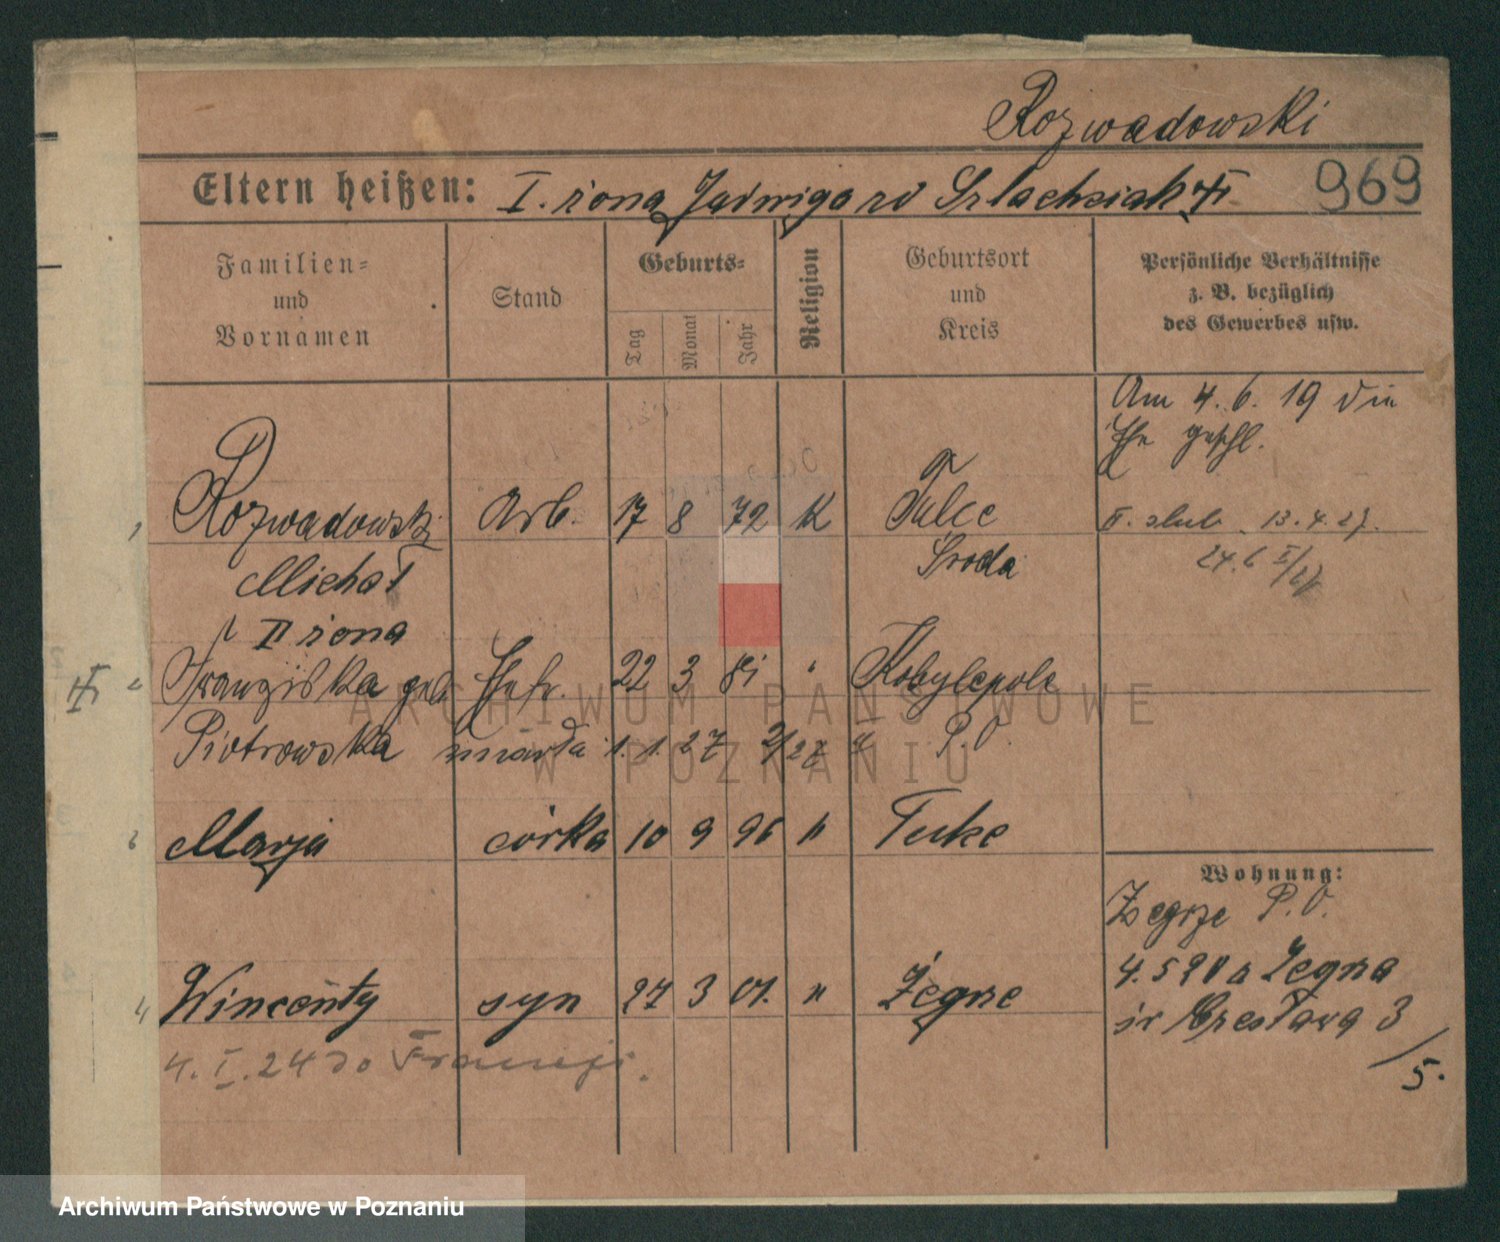 Rozwadowski
Eltern heißen: I. żona Jadwiga zd Szlachciak
969
Familien- und Vornamen
Stand
Geburts-
Tag
Monat
Jahr
Religion
Geburtsort und Kreis
Persönliche Verhältnisse z. B. bezüglich des Gewerbes usw.
Am 4. 6. 19 die
Ehe geschl.
1 Rozwadowski Arb. 17 8 72 K Tulce
II. ślub 13.4.27.
Michał Środa
24.6
II żona
2 Franziska geb Ehefr. 22 3 81 " Kobylepole
Piotrowska umarła 1. 1. 27 2/27 P. O.
3 Marja córka 10 9 96 " Tulce
Wohnung:
Zegrze P. O.
4 Wincenty syn 27 3 01. " Żegrze
4.5 20 a Żegrza
3
/5.
4. I. 24 do Francji.
ARCHIWUM PAŃSTWOWE
W POZNANIU
Archiwum Państwowe w Poznaniu